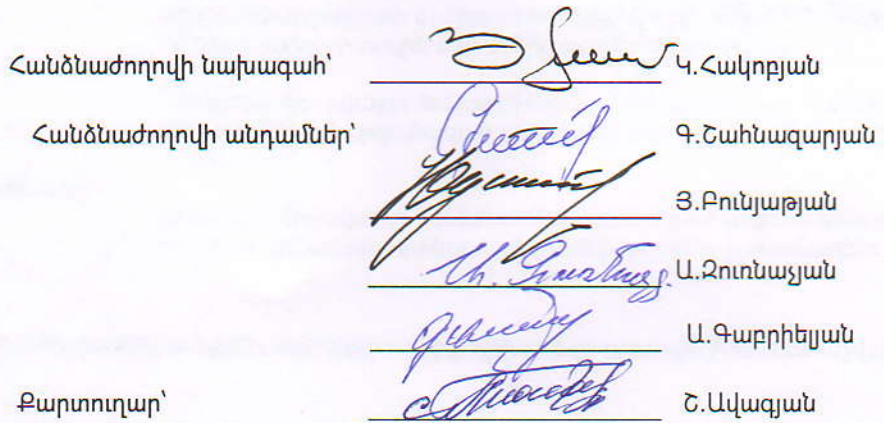 Հանձնաժողովի նախագահ՝ Կ.Հակոբյան
Հանձնաժողովի անդամներ՝ Գ.Շահնազարյան
Յ.Բունյաթյան
Ա.Զուռնաչյան
Ա.Գաբրիելյան
Քարտուղար՝ Շ.Ավագյան